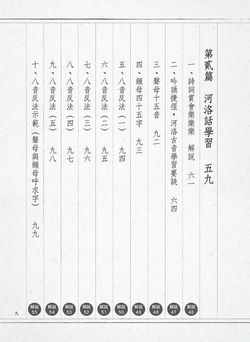 第貳篇　河洛話學習　五九
一、詩詞賞會樂樂樂　解說　六一
二、吟誦捷徑，河洛古音學習要訣　六四
三、聲母十五音　九二
四、韻母四十五字　九三
五、八音反法（一）　九四
六、八音反法（二）　九五
七、八音反法（三）　九六
八、八音反法（四）　九七
九、八音反法（五）　九八
十、八音反法示範（聲母與韻母呼求字）　九九
解說 46
解說 47
解說 48
解說 49
解說 50
解說 51
解說 52
解說 53
解說 54
解說 55
九